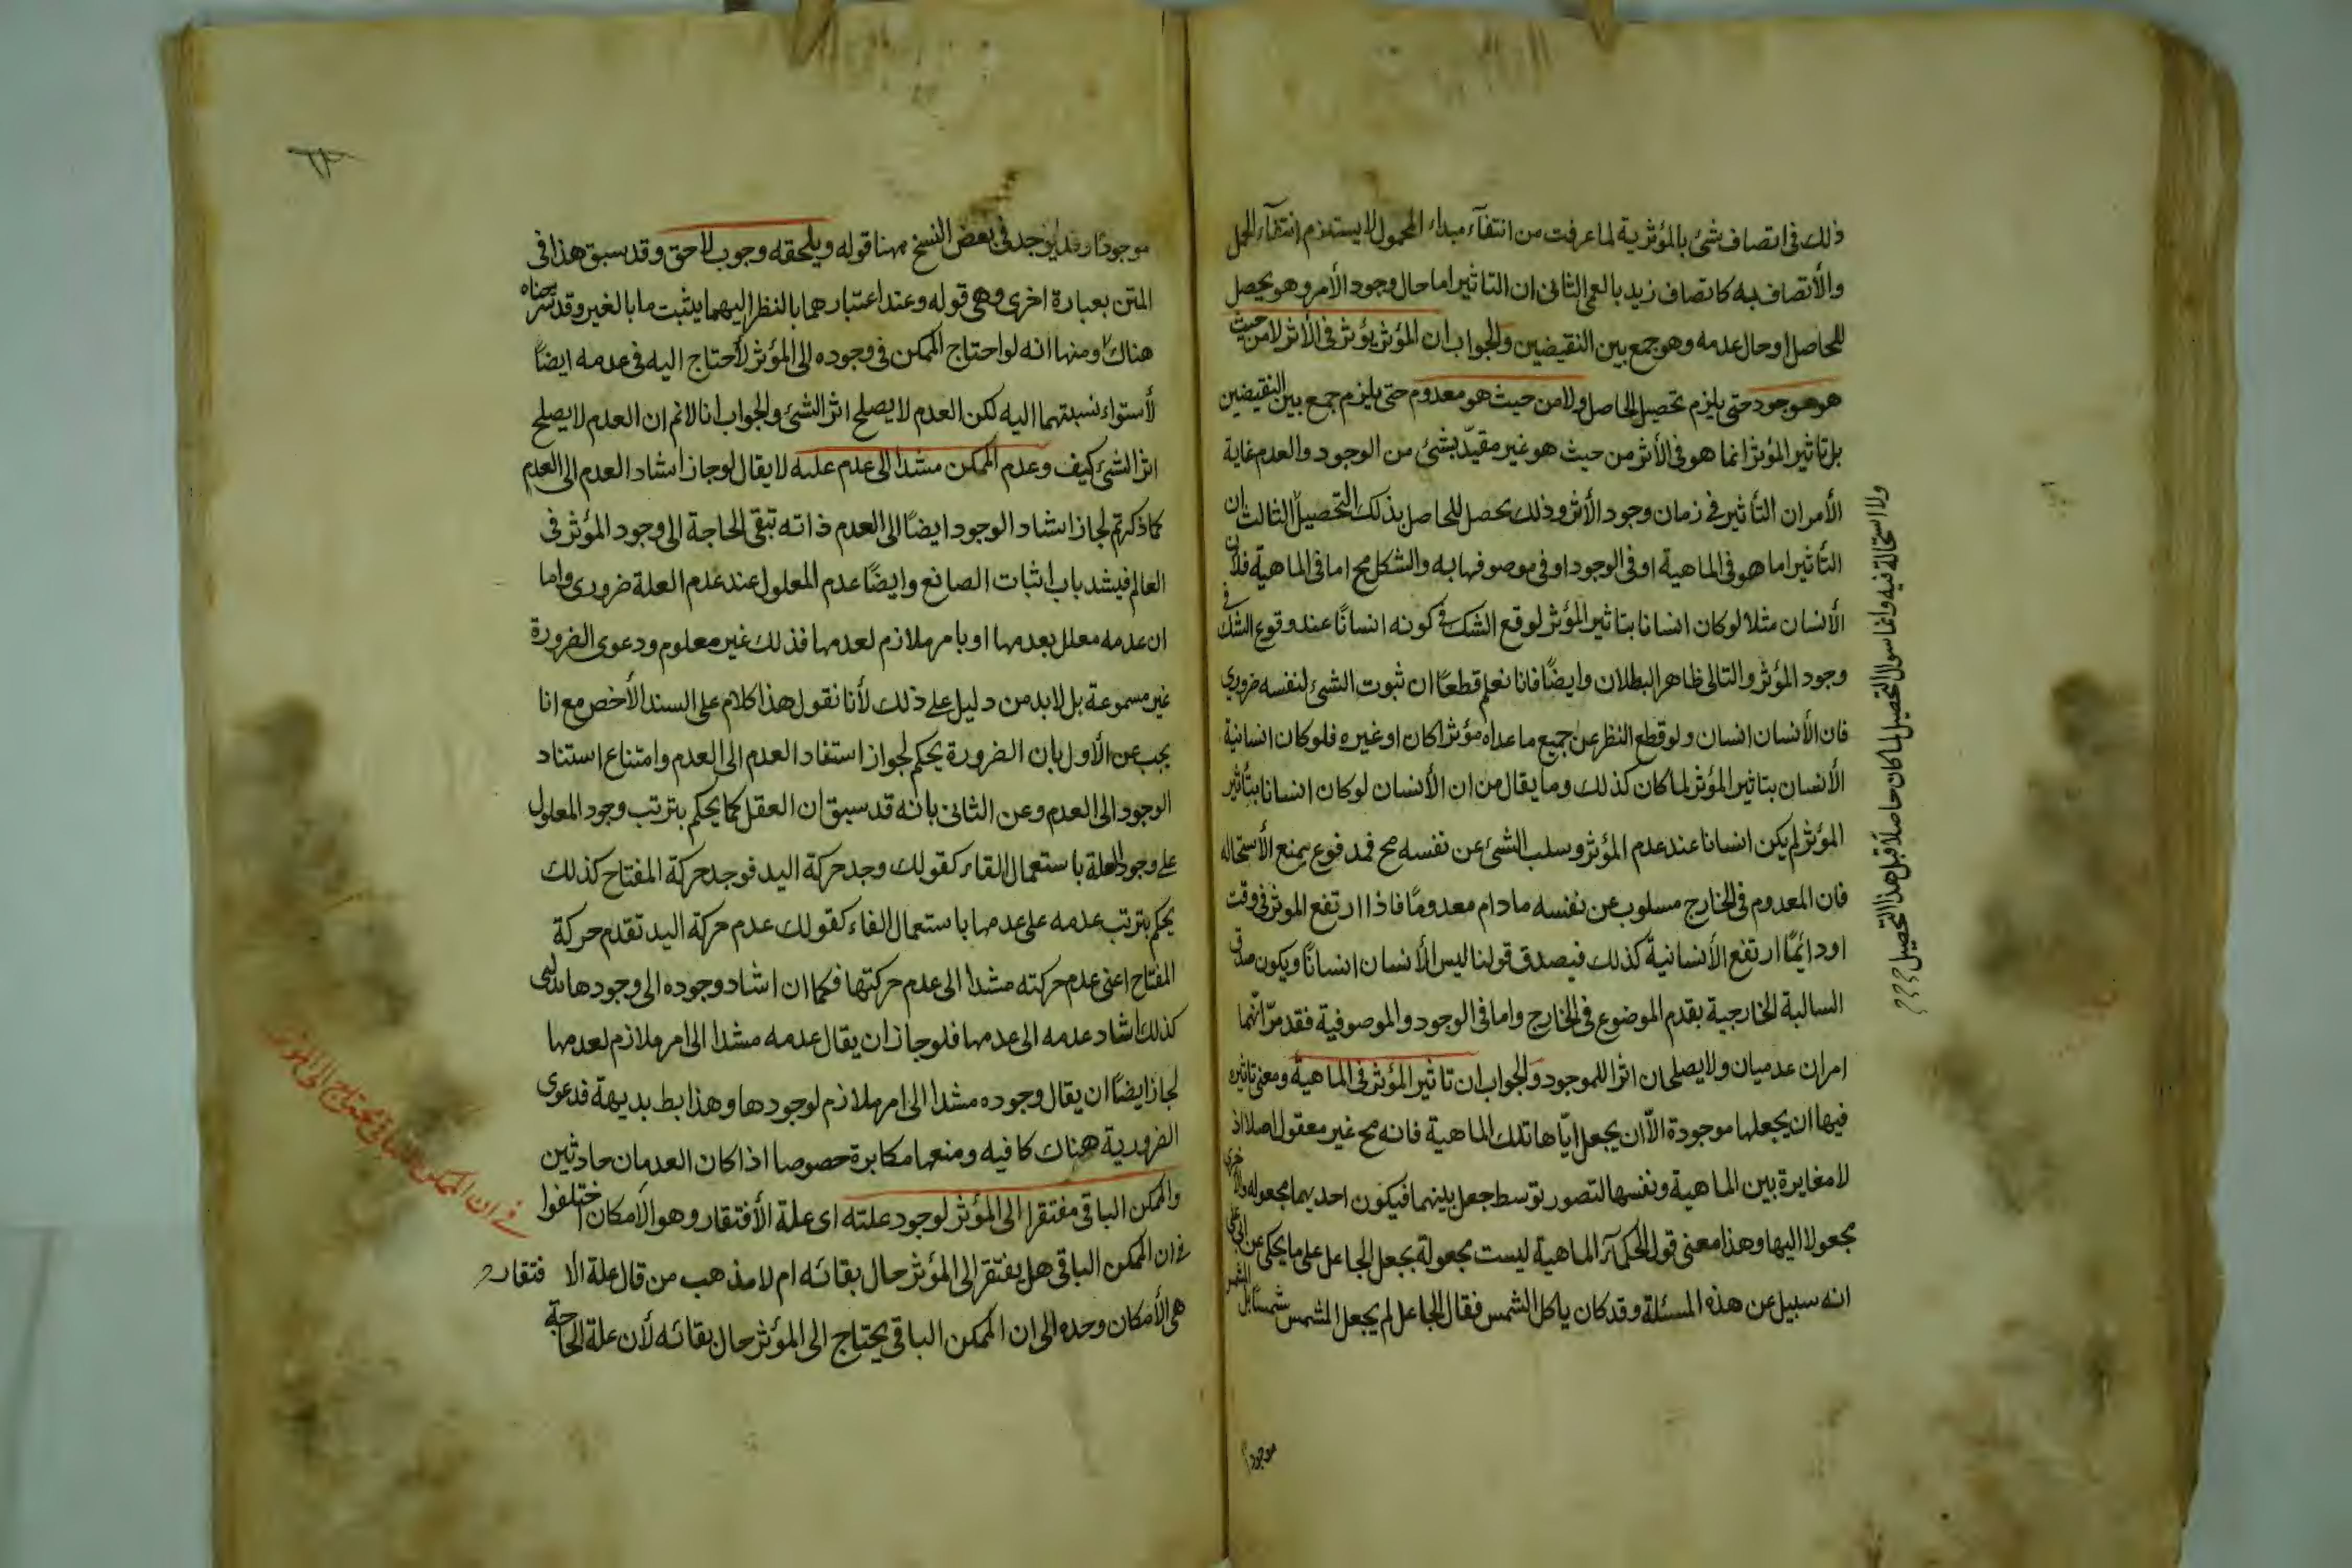 ذلك فى اتصاف شئ بالمؤثرية لما عرفت من انتفآء مبداء المحمول لا يستلزم انتفآء الحمل
والأتصاف به كاتصاف زيد بالعمى الثانى ان التاثير اما حال وجود الأمر وهو يحصل
للحاصل او حال عدمه وهو جمع بين النقيضين والجواب ان المؤثر يؤثر فى الأثر لا من حيث
هو موجود حتى يلزم تحصيل الحاصل ولا من حيث هو معدوم حتى يلزم جمع بين النقيضين
بل تاثير المؤثر انما هو فى الأثر من حيث هو غير مقيّد بشئ من الوجود والعدم غاية
الأمر ان التأثير فى زمان وجود الأثر وذلك يحصل للحاصل بذلك التحصيل الثالث ان
التأثير اما هو فى الماهية او فى الوجود او فى موصوفها به والشكل مح اما فى الماهية فلان
الأنسان مثلا لو كان انسانا بتاثير المؤثر لوقع الشك فى كونه انسانًا عند وقوع الشك فى
وجود المؤثر والتالى ظاهر البطلان وايضًا فانا نعلم قطعًا ان ثبوت الشئ لنفسه ضرورى
فان الأنسان انسان ولو قطع النظر عن جميع ما عداه مؤثرا كان او غيره فلو كان انسانية
الأنسان بتاثير المؤثر لما كان كذلك وما يقال من ان الأنسان لو كان انسانا بتأثير
المؤثر لم يكن انسانا عند عدم المؤثر وسلب الشئ عن نفسه مح فمدفوع بمنع الأستحالة
فان المعدوم فى الخارج مسلوب عن نفسه ما دام معدومًا فاذا ارتفع الموثر فى وقت
او دائمًا ارتفع الأنسانية كذلك فيصدق قولنا ليس الأنسان انسانًا ويكون صدق
السالبة الخارجية بقدم الموضوع فى الخارج واما فى الوجود والموصوفية فقد مرّ انهما
امران عدميان ولا يصلحان اثرا للموجود والجواب ان تاثير المؤثر فى الماهية ومعنى تاثيره
فيها ان يجعلها موجودة الّا ان يجعل ايّاها تلك الماهية فانه مح غير معقول اصلا اذ
لا مغايرة بين الماهية ونفسها لتصور توسط جعل بينهما فيكون احديهما مجعوله والاخرى
مجعولا اليها وهذا معنى قول الحكمآء الماهية ليست مجعولة بجعل الجاعل على ما يحكى عن ابى على
انه سبيل عن هذه المسئلة وقد كان ياكل الشمس فقال الجاعل لم يجعل المشمس شمسًا بل المشمس
ولا استحالة فيه وانما سوال التحصيل لما كان حاصلا قبل هذا التحصيل
موجودا
موجودًا وقد يوجد فى بعض النسخ ههنا قوله ويلحقه وجوب لاحق وقد سبق هذا فى
المتن بعبارة اخرى وهى قوله وعند اعتبارهما بالنظر اليهما يثبت ما بالغير وقد شرحناه
هناك ومنها انه لو احتاج الممكن فى وجوده الى المؤثر لأحتاج اليه فى عدمه ايضاً
لأستواء نسبتهما اليه لكن العدم لا يصلح اثر الشئ والجواب انا لا نم ان العدم لا يصلح
اثر الشئ كيف وعدم الممكن مشدا الى عدم علته لا يقال لو جاز اشاد العدم الى العدم
كما ذكرتم لجاز اشاد الوجود ايضًا الى العدم ذاته تبقى الحاجة الى وجود المؤثر فى
العالم فيشد باب اثبات الصانع وايضًا عدم المعلول عند عدم العلة ضرورى واما
ان عدمه معلل بعدمها او بامر ملازم لعدمها فذلك غير معلوم ودعوى الضرورة
غير مسموعة بل لابد من دليل على ذلك لأنا نقول هذا كلام على السند الأخص مع انا
يجب عن الأول بان الضرورة يحكم لجواز استفاد العدم الى العدم وامتناع استناد
الوجود الى العدم وعن الثانى بانه قد سبق ان العقل كما يحكم بترتب وجود المعلول
على وجود العلة باستعمال الفاء كقولك وجد حركة اليد فوجد حركة المفتاح كذلك
يحكم بترتب عدمه على عدمها باستعمال الفاء كقولك عدم حركة اليد تقدم حركة
المفتاح اعنى عدم حركته مشدا الى عدم حركتها فكما ان اشاد وجوده الى وجودها بديهى
كذلك اشاد عدمه الى عدمها فلو جاز ان يقال عدمه مشدا الى امر ملازم لعدمها
لجاز ايضًا ان يقال وجوده مشدا الى امر ملازم لوجودها وهذا بط بديهة فدعوى
الضرورية هناك كافيه ومنعها مكابرة خصوصا اذا كان العدمان حادثين
والممكن الباقى مفتقرا الى المؤثر لوجود علته اى علة الأفتقار وهو الأمكان اختلفوا
فى ان الممكن الباقى هل يفتقر الى المؤثر حال بقائه ام لا مذهب من قال علة الافتقار
هى الأمكان وحده الى ان الممكن الباقى يحتاج الى المؤثر حال بقائه لأن علة الحاجة
فى ان الممكن الباقى يحتاج الى المؤثر